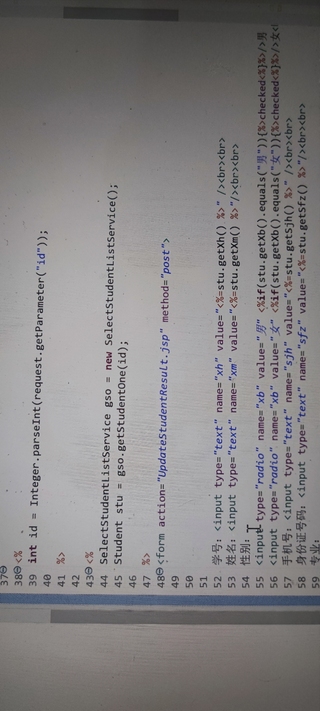 37
38 <%
39 int id = Integer.parseInt(request.getParameter("id"));
40
41 %>
42
43 <%
44 SelectStudentListService gso = new SelectStudentListService();
45 Student stu = gso.getStudentOne(id);
46
47 %>
48 <form action="UpdateStudentResult.jsp" method="post">
49
50
51
52 学号: <input type="text" name="xh" value="<%=stu.getXh() %>" /><br><br>
53 姓名: <input type="text" name="xm" value="<%=stu.getXm() %>"/><br><br>
54 性别:
55 <input type="radio" name="xb" value="男" <%if(stu.getXb().equals("男")){%>checked<%}%>/>男
56 <input type="radio" name="xb" value="女" <%if(stu.getXb().equals("女")){%>checked<%}%>/>女<
57 手机号: <input type="text" name="sjh" value="<%=stu.getSjh() %>" /><br><br>
58 身份证号码: <input type="text" name="sfz" value="<%=stu.getSfz() %>"/><br><br>
59 专业: